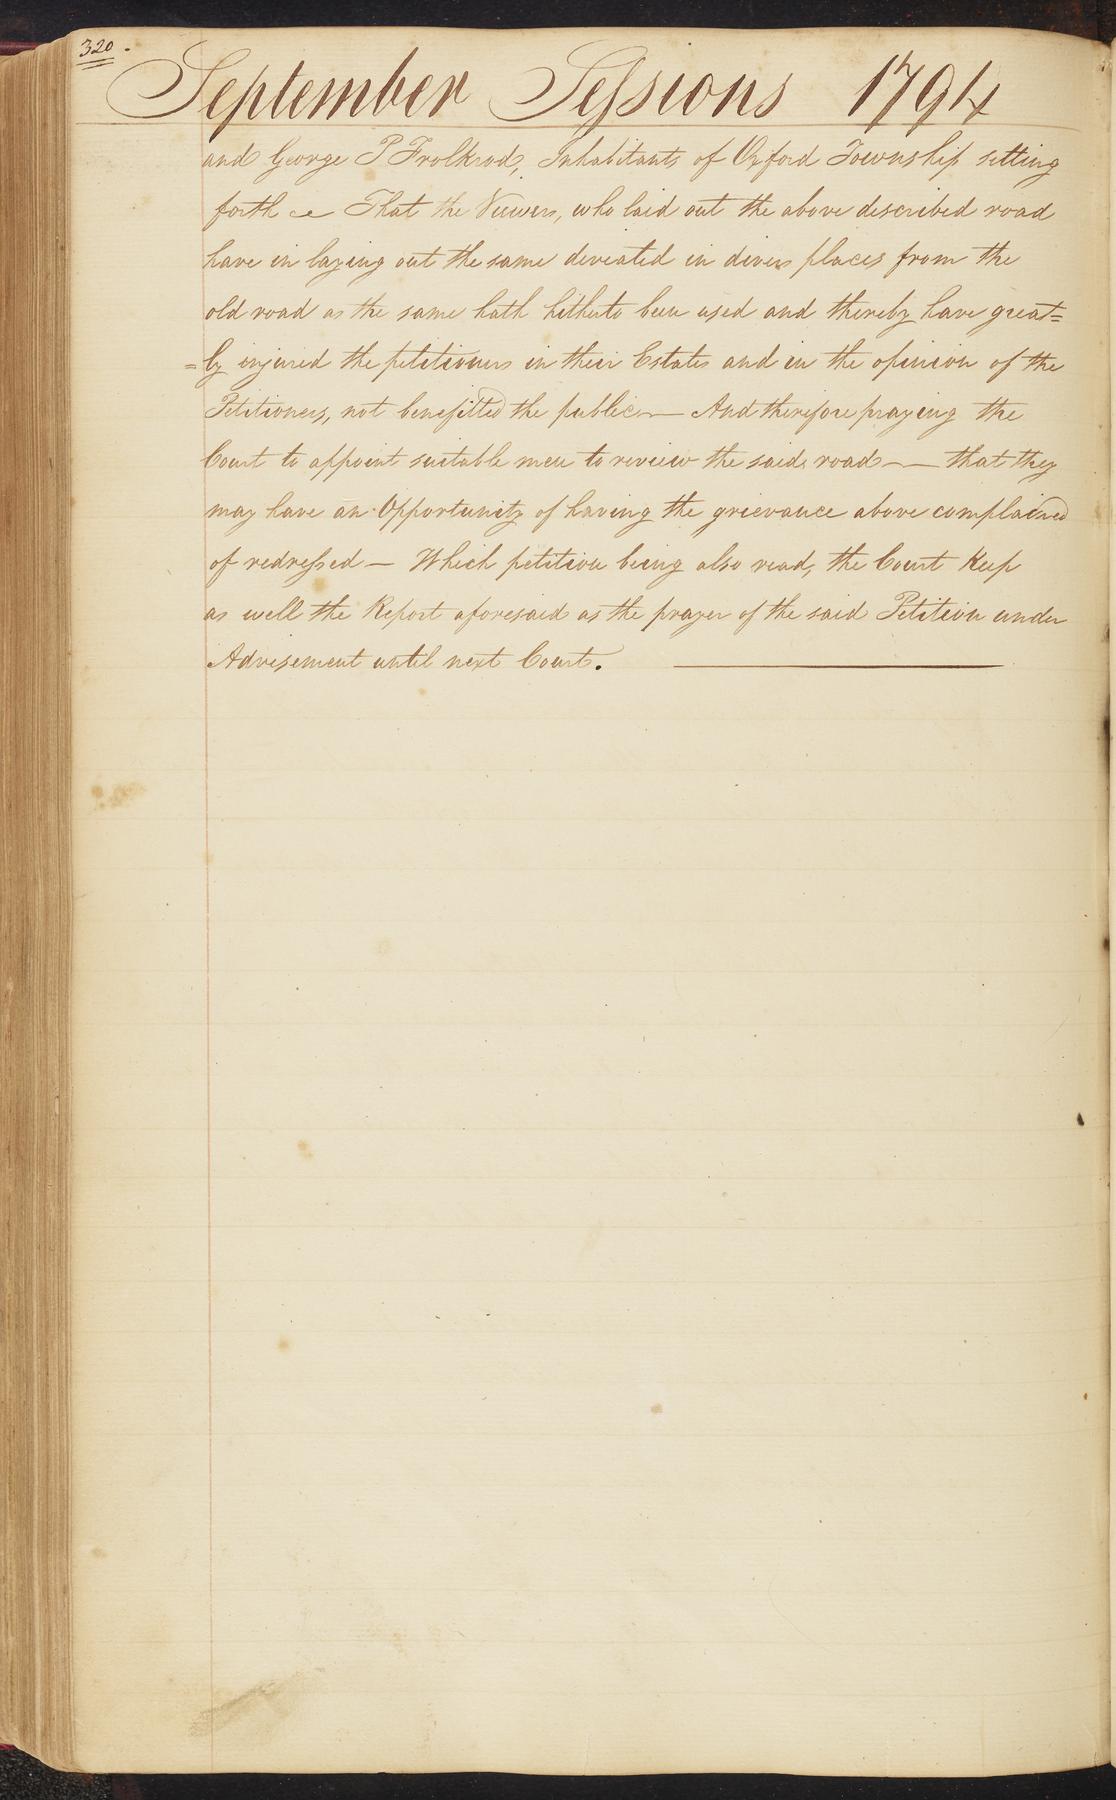 320.
September Sessions 1794
and George P Frolkrod, Inhabitants of Oxford Township setting
forth That the Viewers, who laid out the above described road
have in laying out the same deviated in divers places from the
old road as the same hath hitherto been used and thereby have great=
=ly injured the petitioners in their Estates and in the opinion of the
Petitioners, not benefitted the public — And therefore praying the
Court to appoint suitable men to review the said road — — that they
may have an Opportunity of having the grievance above complained
of redressed — Which petition being also read, the Court Keep
as well the Report aforesaid as the prayer of the said Petition under
Advisement until next Court.